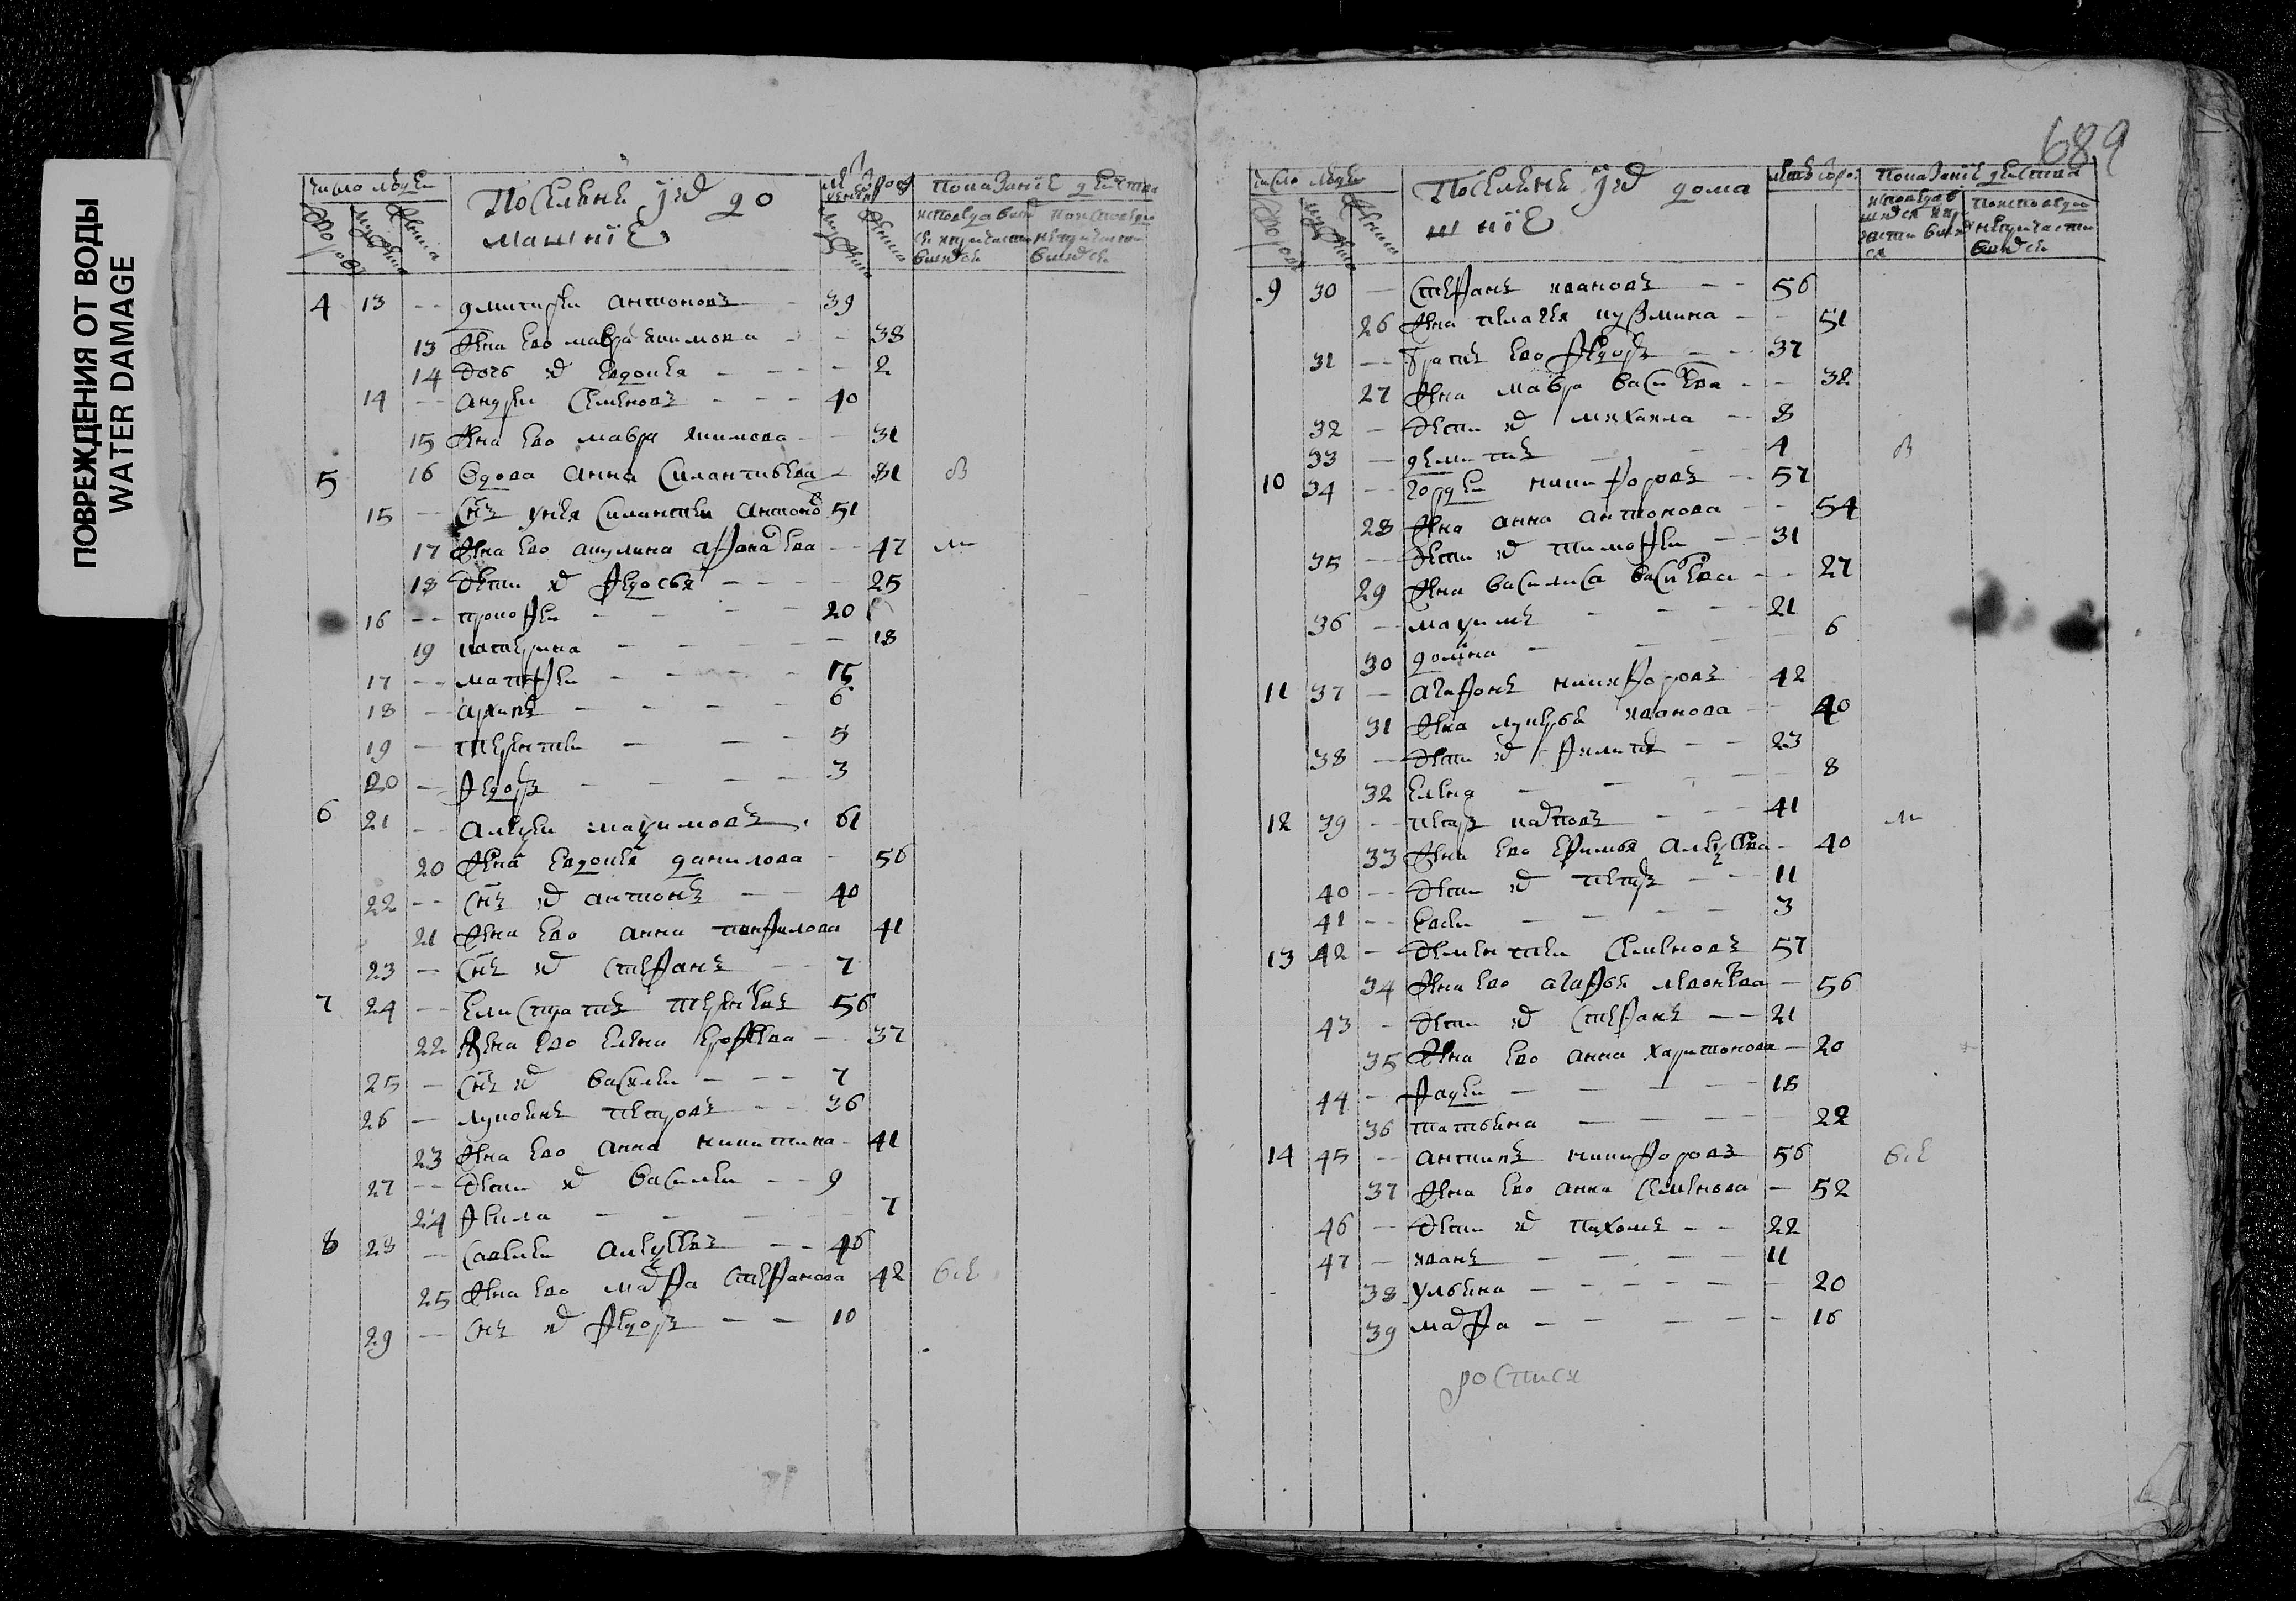 ПОВРЕЖДЕНИЯ ОТ ВОДЫ
WATER DAMAGE
число людеи Поселяне и их до 
машнiе показанiе действа
дворовъ мужска женска
4 13 -- дмитреи антоновъ 39
13 жена ево мавра 38
14 дочь их евдокея 2
14 -- андреи семеновъ 40
15 жена ево мавра екимова 31
5 16 вдова анна силантиева 81
15 -- снъ у нея силантеи антоно 51
17 жена ево акулина афонасева 47
18 дети их федосья 25
16 -- прокофеи 20
19 катерина 18
17 -- матфеи 15
18 -- архипъ 6
19 -- терентеи 5
20 -- федоръ 3
6 21 -- алексеи максимовъ 61
20 жена евдокея данилова 56
22 -- снъ их антонъ 40
21 жена ево анна панфилова 41
23 -- снъ их стефанъ 7
7 24 -- елистратъ терентевъ 56
22 жена ево елена ерофеева 37
25 -- снъ их василеи 7
26 -- лукоянъ петровъ 36
23 жена ево анна никитина 41
27 -- дети их василеи 9
24 фекла 7
8 28 -- савелеи алексеевъ 46
25 жена ево марфа стефанова 42 все
29 -- снъ их федоръ 10
689
число людеи Поселяне и их дома
шнiе показанiе действа
9 30 -- стефанъ ивановъ 56
26 жена пелагея кузмина 51
31 -- братъ ево федоръ 37
27 жена мавра василева 32
32 -- дети их михаила 8
33 -- дементеи 4
10 34 -- гордеи никифоровъ 57
28 жена анна антонова 54
35 -- дети их тимофеи 31
29 жена василиса василева 27
36 -- максимъ 21
30 домна 6
11 37 -- агафонъ никифоровъ 42
31 жена лукерья иванова 40
38 -- дети их филипъ 23
32 елена 8
12 39 -- петръ карповъ 41
33 жена ево ефимья алексеева 40
40 -- дети их петръ 11
41 -- евсеи 3
13 42 -- дементеи семеновъ 57
34 жена ево агафья леонтева 56
43 -- дети их стефанъ 21
35 жена ево анна харитонова 20
44 -- фадеи 18
36 татьяна 22
14 45 -- антипъ никифоровъ 56 все
37 жена ево анна семенова 52
46 -- дети их пахомъ 22
47 -- иванъ 11
38 ульяна 20
39 марфа 16
росписи